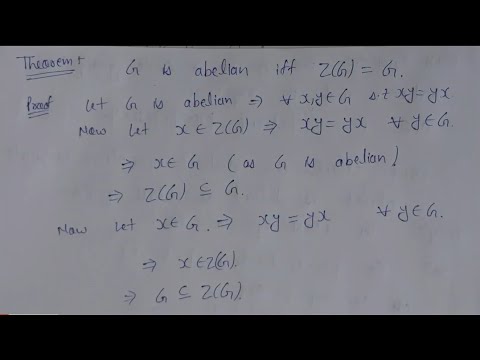 Theorem: G is abelian iff Z(G) = G.
Proof Let G is abelian ⇒ ∀ x,y∈G s.t xy=yx
Now let x∈Z(G) ⇒ xy=yx ∀ y∈G.
⇒ x∈G (as G is abelian)
⇒ Z(G) ⊆ G.
Now let x∈G. ⇒ xy=yx ∀ y∈G.
⇒ x∈Z(G).
⇒ G ⊆ Z(G).